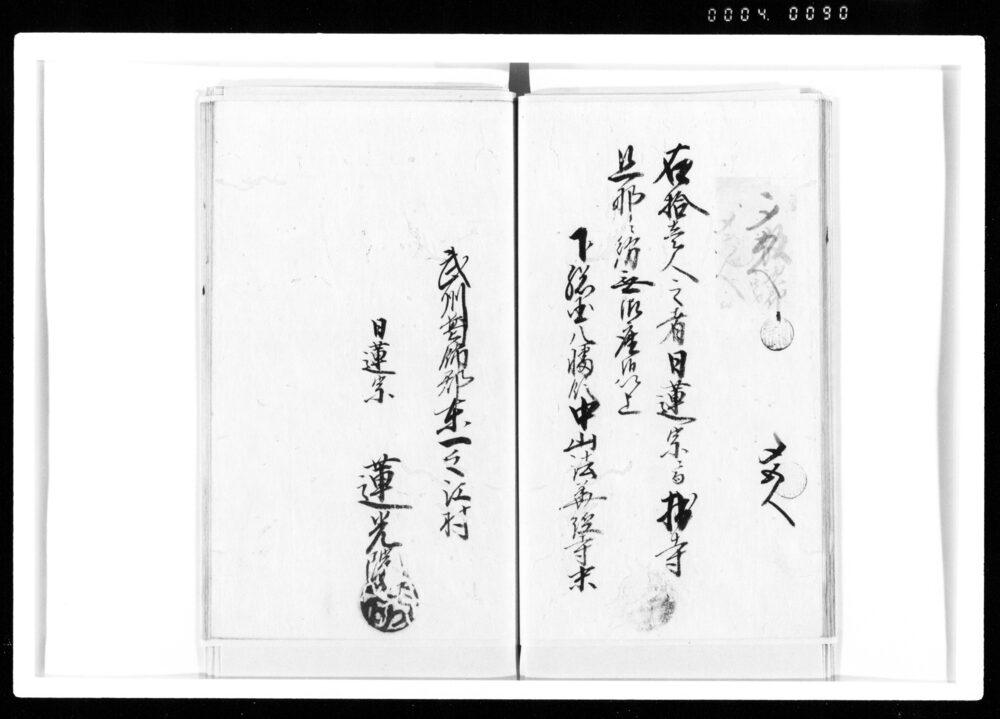 0004.0090
右拾壱人之者日蓮宗ニ而拙寺
旦那ニ紛無御座候以上
下総国八幡領中山法華経寺末
武州葛飾郡東一之江村
日蓮宗 蓮光院